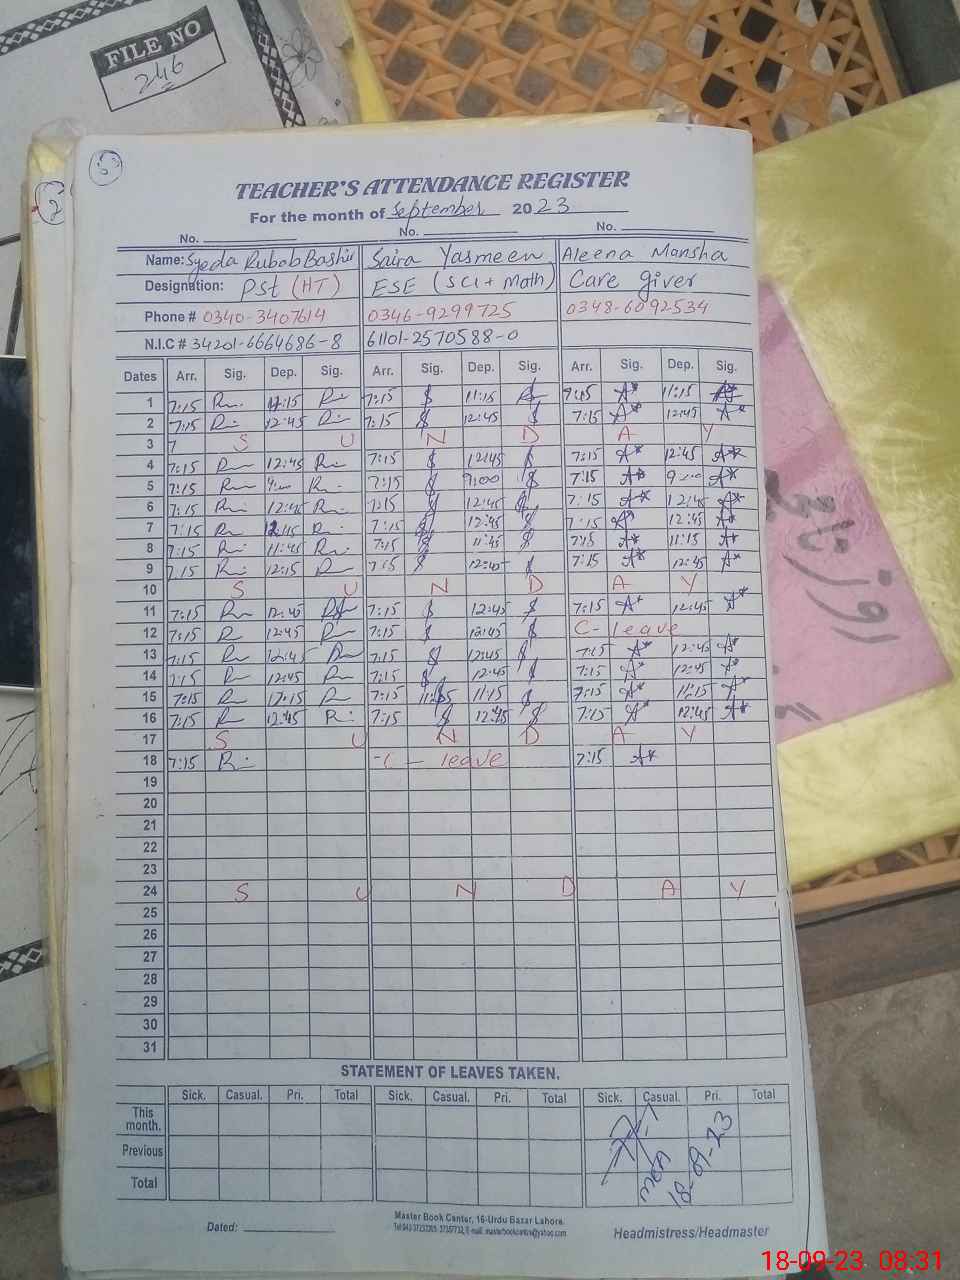 FILE NO
246
5
2
TEACHER'S ATTENDANCE REGISTER
For the month of September 2023
No. No. No.
Name: Syeda Rubab Bashir Saira Yasmeen Aleena Mansha
Designation: PST (HT) ESE (SCI + Math) Care giver
Phone # 0340-3407614 0346-9299725 0348-6092534
N.I.C # 34201-6664686-8 61101-2570588-0
Dates Arr. Sig. Dep. Sig. Arr. Sig. Dep. Sig. Arr. Sig. Dep. Sig.
1 7:15 11:15 7:15 11:15 7:15 11:15
2 7:15 12:45 7:15 12:45 7:15 12:45
3 7 S U N D A Y
4 7:15 12:45 7:15 12:45 7:15 12:45
5 7:15 7:15 9:00 7:15 9:00
6 7:15 12:45 7:15 12:45 7:15 12:45
7 7:15 12:45 7:15 12:45 7:15 12:45
8 7:15 11:45 7:15 11:45 7:15 11:15
9 7:15 12:15 7:15 12:45 7:15 12:45
10 S U N D A Y
11 7:15 12:45 7:15 12:45 7:15 12:45
12 7:15 12:45 7:15 12:45 C- leave
13 7:15 12:45 7:15 12:45 7:15 12:45
14 7:15 12:45 7:15 12:45 7:15 12:45
15 7:15 7:15 11:15 7:15 11:15
16 7:15 12:45 7:15 12:45 7:15 12:45
17 S U N D A Y
18 7:15 C - leave 7:15
19
20
21
22
23
24 S U N D A Y
25
26
27
28
29
30
31
STATEMENT OF LEAVES TAKEN.
Sick. Casual. Pri. Total Sick. Casual. Pri. Total Sick. Casual. Pri. Total
This month.
Previous
Total
MEA
18-09-23
Dated:
Master Book Center, 16-Urdu Bazar Lahore.
Headmistress/Headmaster
18-09-23 08:31